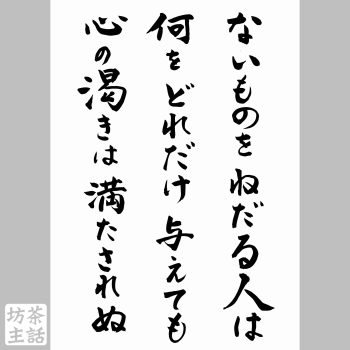 ないものを ねだる人は
何を どれだけ 与えても
心の渇きは 満たされぬ
坊主茶話